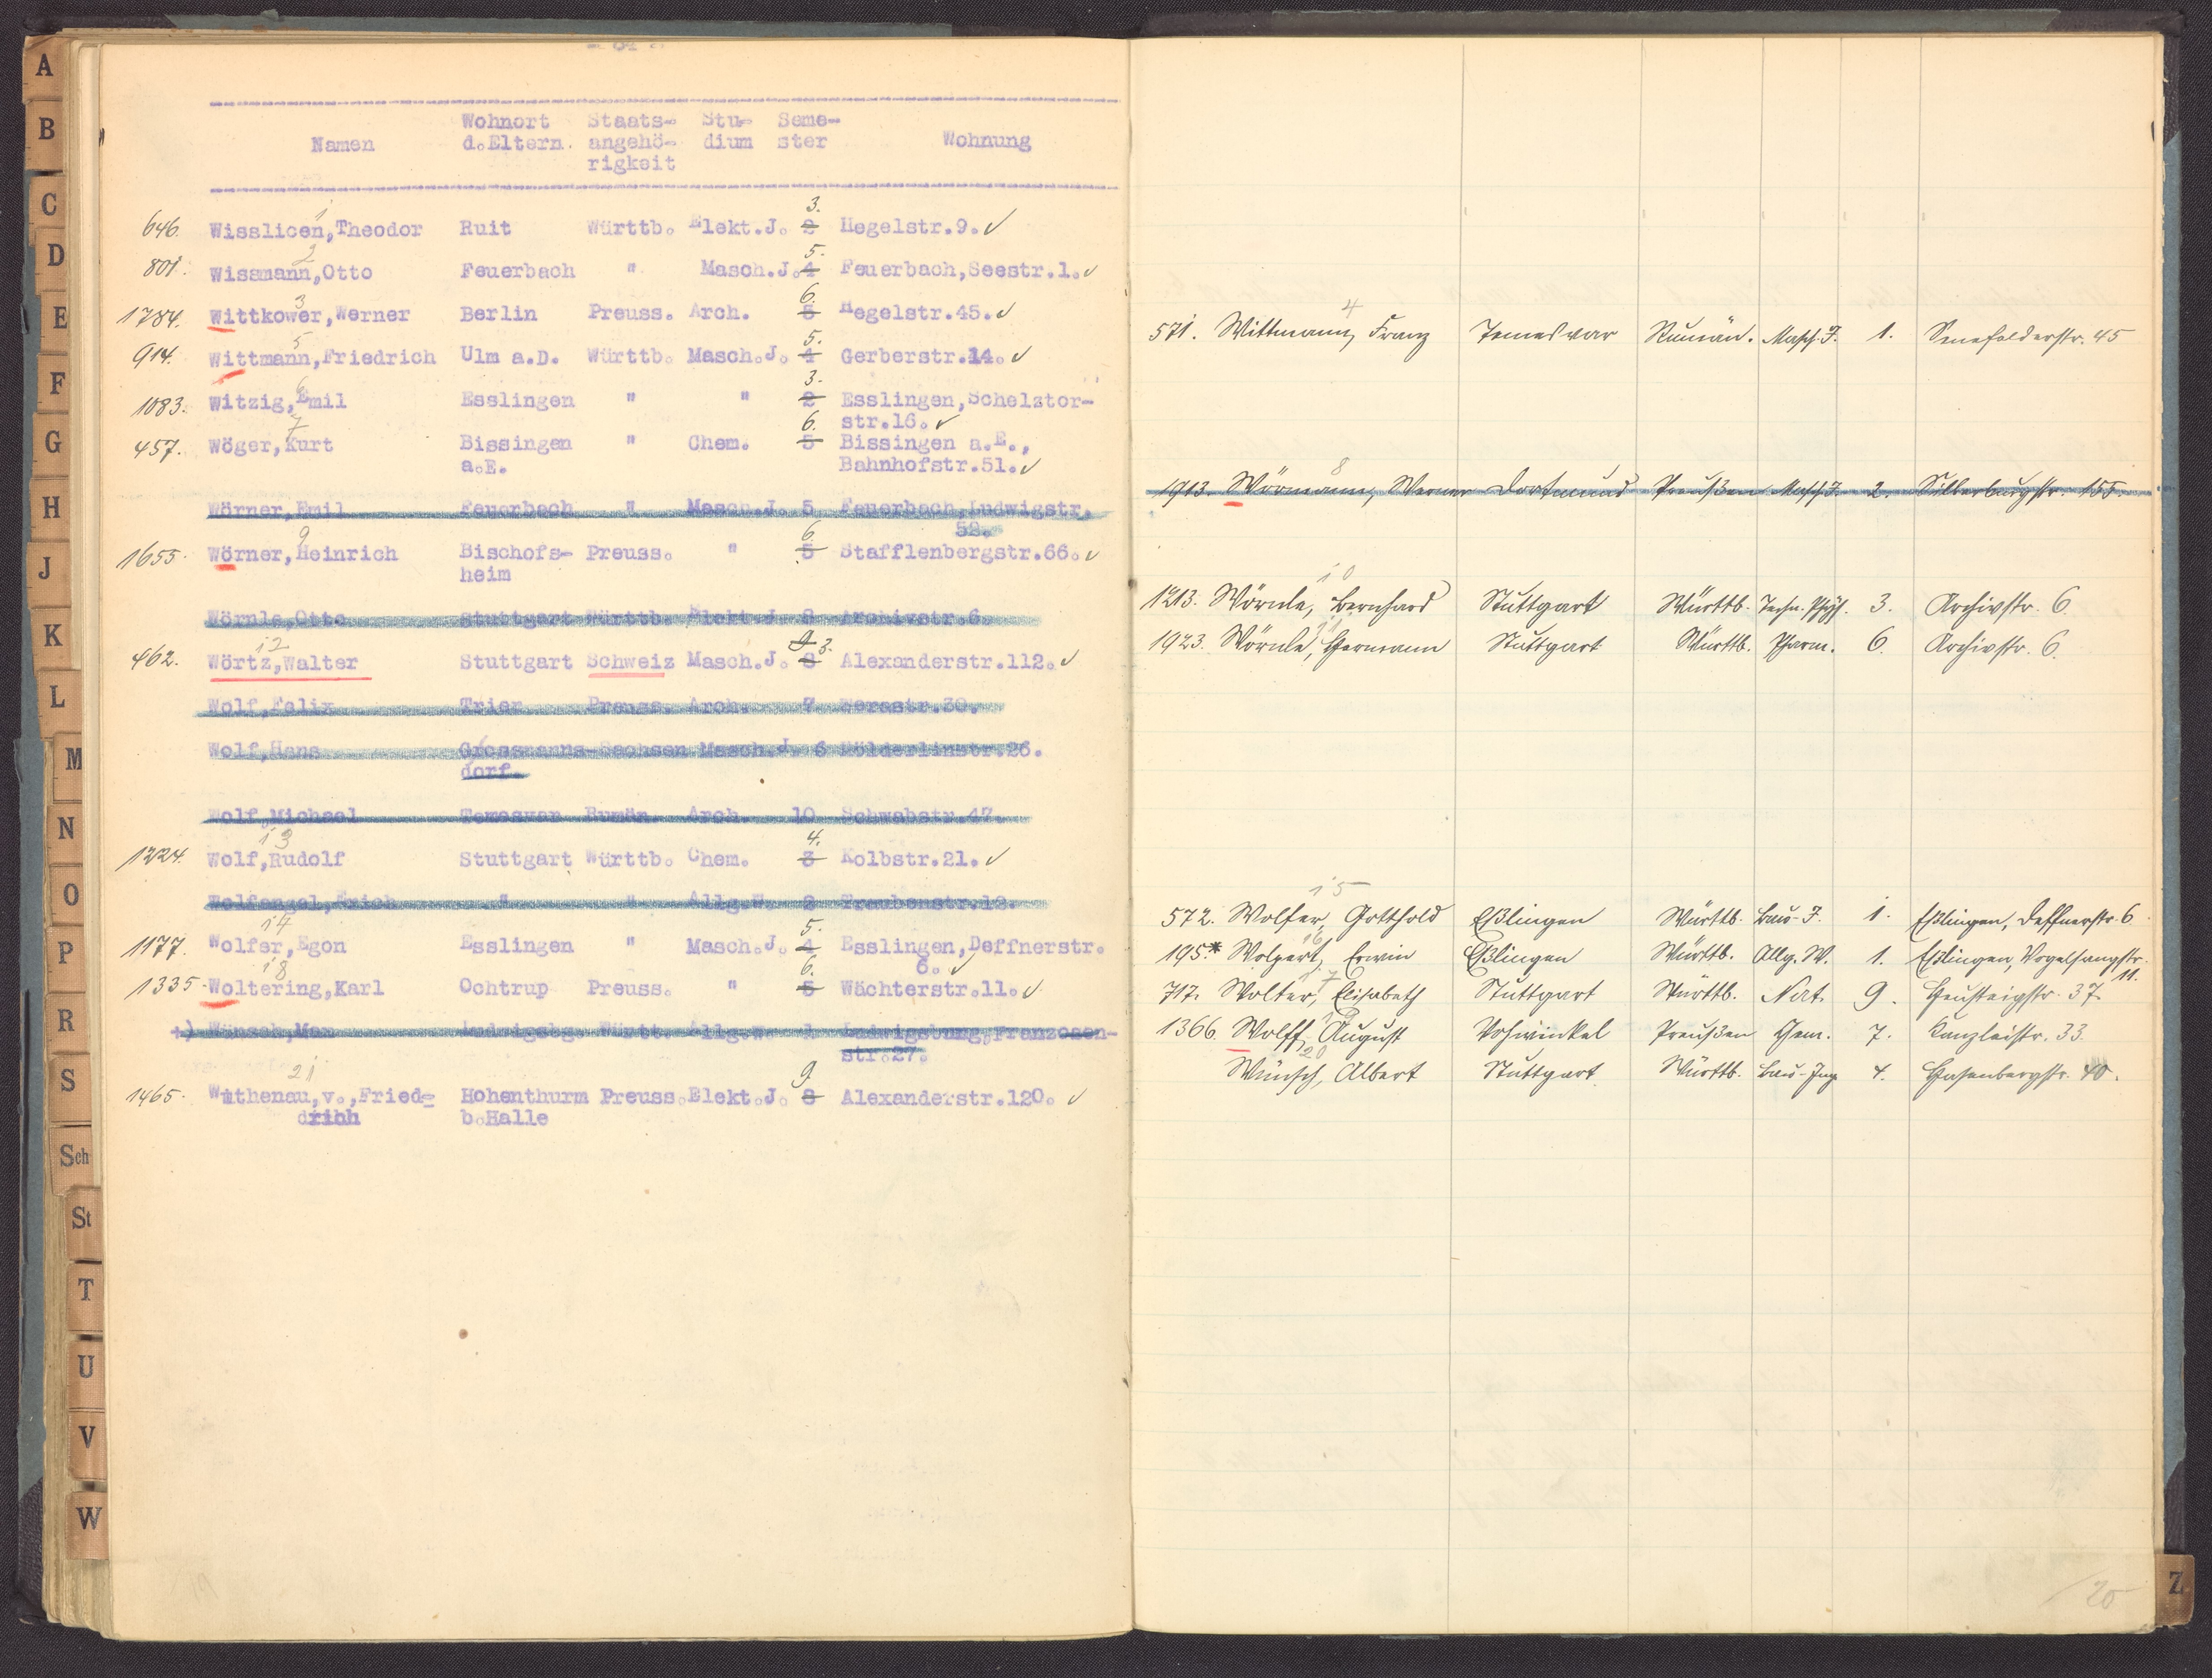 A
B
C
D
E
F
G
H
J
K
L
M
N
O
P
R
S
Sch
St
T
U
V
W
Wohnort Staats- Stu- Seme-
Namen d.Eltern. angehö- dium ster Wohnung
rigkeit
1 3.
646. Wisslicen,Theodor Ruit Württb. Elekt.J. 2 Hegelstr.9. ✓
2 5.
801. Wissmann,Otto Feuerbach " Masch.J. 4 Feuerbach,Seestr.1. ✓
3 6.
1784. Wittkower,Werner Berlin Preuss. Arch. 5 Hegelstr.45. ✓
5 5.
914. Wittmann,Friedrich Ulm a.D. Württb. Masch.J. 4 Gerberstr.14. ✓
6 3.
1083. Witzig,Emil Esslingen " " 2 Esslingen,Schelztor-
7 6. str.16. ✓
457. Wöger,Kurt Bissingen " Chem. 5 Bissingen a.E.,
a.E. Bahnhofstr.51. ✓
Wörner,Emil Feuerbach " Masch.J. 5 Feuerbach,Ludwigstr.
52.
9 6.
1655. Wörner,Heinrich Bischofs- Preuss. " 5 Stafflenbergstr.66. ✓
heim
Wörnle,Otto Stuttgart Württb. Elekt.J. 8 Archivstr.6.
12 9 3.
462. Wörtz,Walter Stuttgart Schweiz Masch.J. 8 Alexanderstr.112. ✓
Wolf,Felix Trier Preuss. Arch. 7
Wolf,Hans Grossmanns- Sachsen Masch.J. 6 Hölderlinstr.26.
dorf.
Wolf,Michael Temesvar Rumän. Arch. 10 Schwabstr.47.
13 4.
1224. Wolf,Rudolf Stuttgart Württb. Chem. 3 Kolbstr.21. ✓
Wolfangel,Erich " " Allg.W. 2 Traubenstr.12.
14 5.
1177. Wolfer,Egon Esslingen " Masch.J. 4 Esslingen,Deffnerstr.
18 6. 6. ✓
1335. Woltering,Karl Ochtrup Preuss. " 5 Wächterstr.11. ✓
+) Wünsch,Max Ludwigsbg. Württ. Allg.W. 1 Ludwigsburg,Franzosen-
str.27.
21 9.
1465. Wuthenau,v.,Fried- Hohenthurm Preuss. Elekt.J. 8 Alexanderstr.120. ✓
drich b.Halle
4
571. Wittmann, Franz Temesvar Rumän. Masch.J. 1. Senefelderstr. 45
8
1913. Wörmann, Werner Dortmund Preußen Masch.J. 2. Silberburgstr. 155.
10
1213. Wörnle, Bernhard Stuttgart Württb. Techn. Phys. 3. Archivstr. 6.
11
1923. Wörnle, Hermann Stuttgart Württb. Pharm. 6. Archivstr. 6.
15
572. Wolfer, Gotthold Eßlingen Württb. Bau-J. 1. Eßlingen, Deffnerstr. 6.
16
195.* Wolpert, Erwin Eßlingen Württb. Allg. W. 1. Eßlingen, Vogelsangstr.
11.
17
717. Wolter, Elisabeth Stuttgart Württb. Nat. 9. Heusteigstr. 37.
19
1366. Wolff, August Vohwinkel Preußen Chem. 7. Kanzleistr. 33.
20
Wünsch, Albert Stuttgart Württb. Bau-Ing. 4. Hasenbergstr. 40.
20
Z